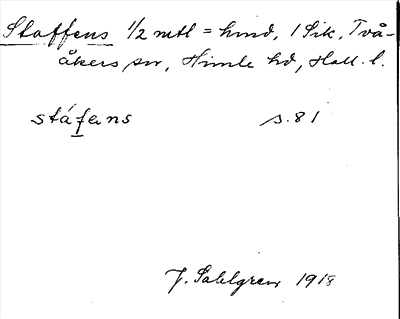 Staffens 1/2 mtl = hmd, 1 Sik, Två-
åkers sn, Himle hd, Hall. l.
stáfens s. 81
J. Sahlgren 1918